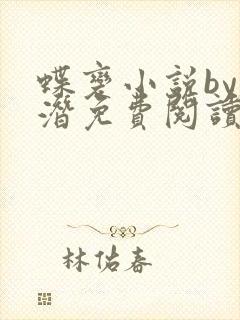 蝶裘小説by
潛免費閱讀
林佑春